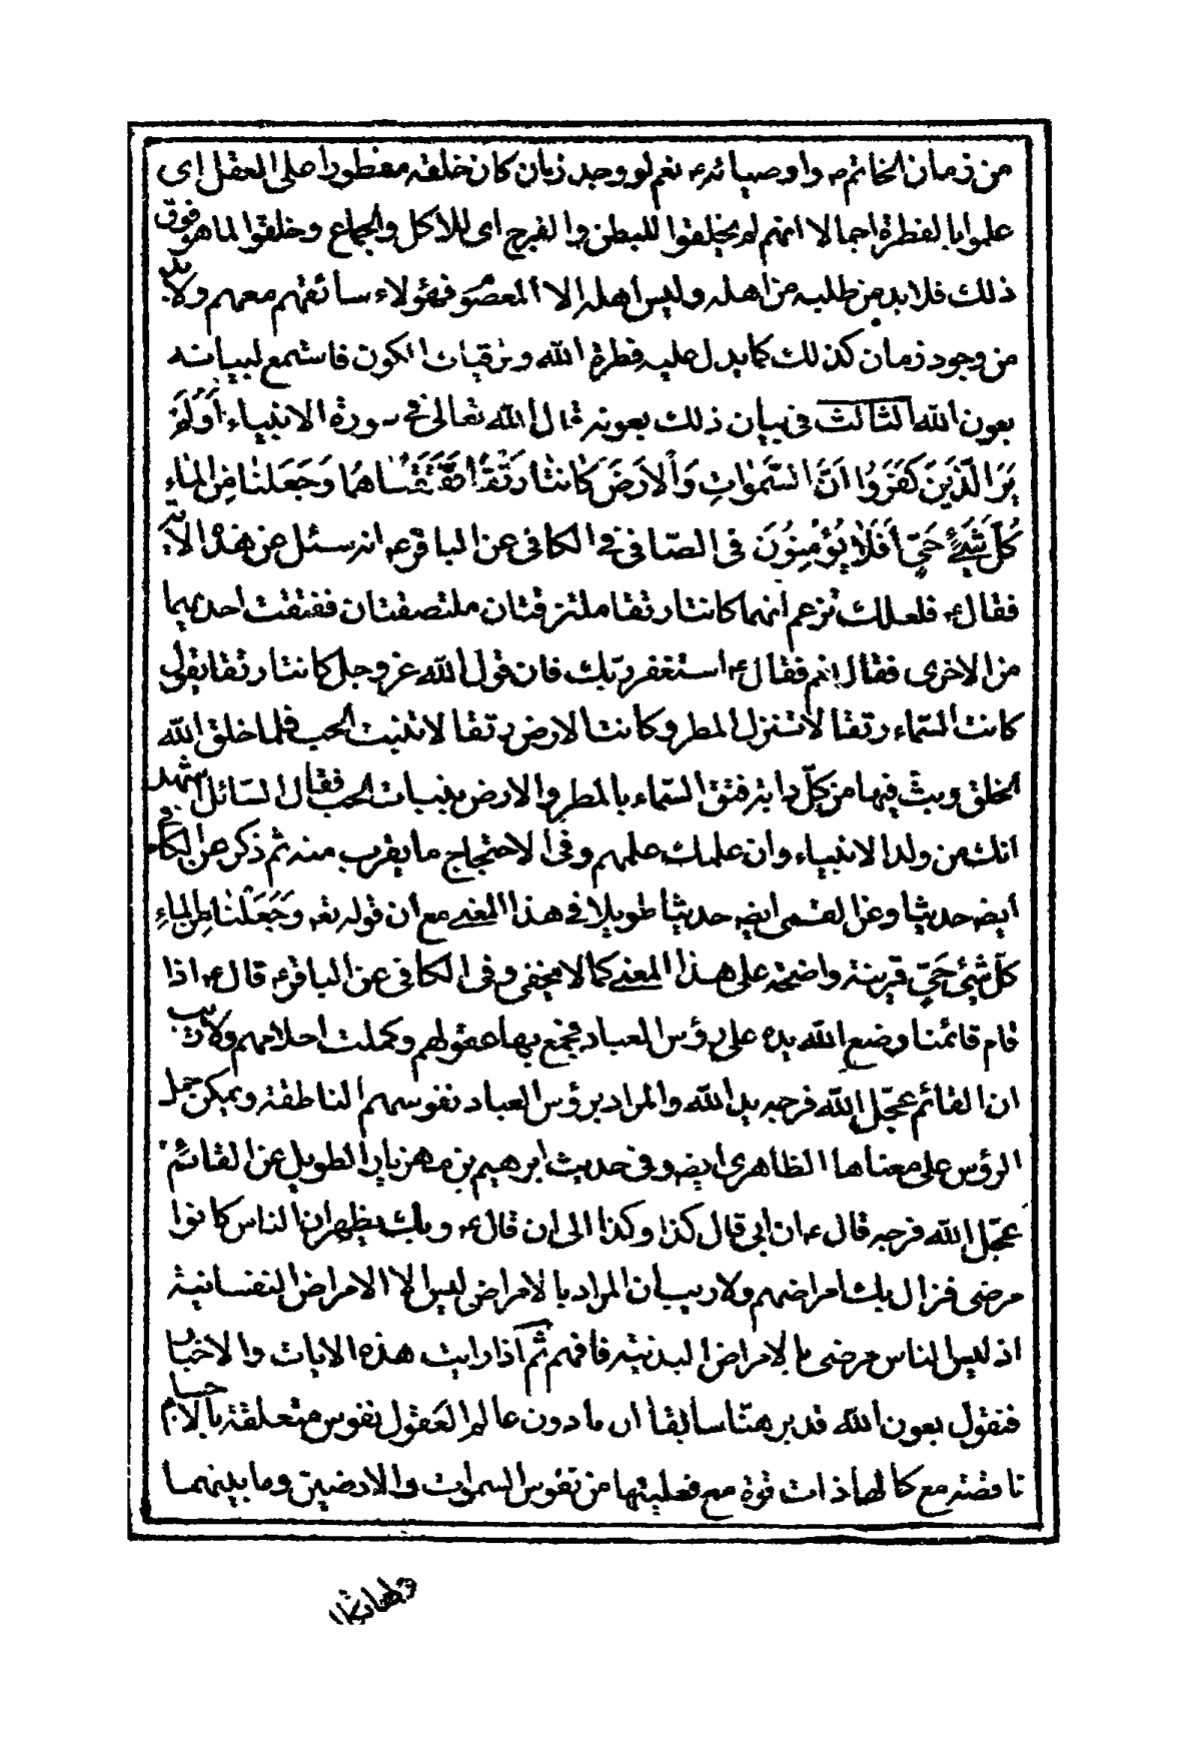 من زمان الخاتم ص واوصيائه ع نعم لو وجد زمان كان خلقه مفطورا على العقل اى
علموا بالفطرة اجمالا انهم لم يخلقوا للبطن والفرج اى للاكل والجماع وخلقوا لما هو فوق
ذلك فلابد من طلبه من اهله وليس اهله الا المعصوم فهؤلاء سائقهم معهم ولابد
من وجود زمان كذلك كما يدل عليه فطرة الله وترقيات الكون فاستمع لبيانه
بعون الله الثالث فى بيان ذلك بعونه قال الله تعالى فى سورة الانبياء أَوَلَمْ
يَرَ الَّذِينَ كَفَرُوا اَنَّ السَّمٰوٰاتِ وَالْاَرْضَ كٰانَتٰا رَتْقًا فَفَتَقْنٰاهُمٰا وَجَعَلْنٰا مِنَ الْمٰاءِ
كُلَّ شَيْءٍ حَيٍّ أَفَلٰا يُؤْمِنُونَ فى الصّافى فى الكافى عن الباقر ع انه سئل عن هذه الاية
فقال ع فلعلك تزعم انهما كانتا رتقا ملتزقتان ملتصقتان ففتقت احديهما
من الاخرى فقال نعم فقال ع استغفر ربّك فان قول الله عز وجل كانتا رتقا يقول
كانت السّماء رتقا لا تنزل المطر وكانت الارض رتقا لا تنبت الحب فلما خلق الله
الخلق وبث فيها من كلّ دابة فتق السّماء بالمطر والارض بنبات الحب فقال السّائل اشهد
انك من ولد الانبياء وان علمك علمهم وفى الاحتجاج ما يقرب منه ثم ذكر عن الكافى
ايضه حديثا وعن القمى ايضه حديثا طويلا فى هذا المعنى مع ان قوله تعه وَجَعَلْنٰا مِنَ الْمٰاءِ
كلّ شَيْئٍ حَيٍّ قرينة واضحة على هذا المعنى كما لا يخفى وفى الكافى عن الباقر ع قال ع اذا
قام قائمنا وضع الله يده على رؤس العباد فجمع بها عقولهم وكملت احلامهم ولا ريب
ان القائم عجّل الله فرجه يد الله والمراد برؤس العباد نفوسهم الناطقة ويمكن حمل
الرؤس على معناها الظاهرى ايضه وفى حديث ابرهيم بن مهزيار الطويل عن القائم ع
عجّل الله فرجه قال ع ان ابى قال كذا وكذا الى ان قال ع وبك يظهر ان الناس كانوا
مرضى فزال بك امراضهم ولا ريب ان المراد بالامراض ليس الا الامراض النفسانية
اذ ليس الناس مرضى بالامراض البدنية فافهم ثم اذا رايت هذه الايات والاخبار
فنقول بعون الله قد برهنّا سابقا ان ما دون عالم العقول نفوس متعلقة بالاجسام
ناقصة مع كمالها ذات قوة مع فعليتها من نفوس السموات والارضين وما بينهما